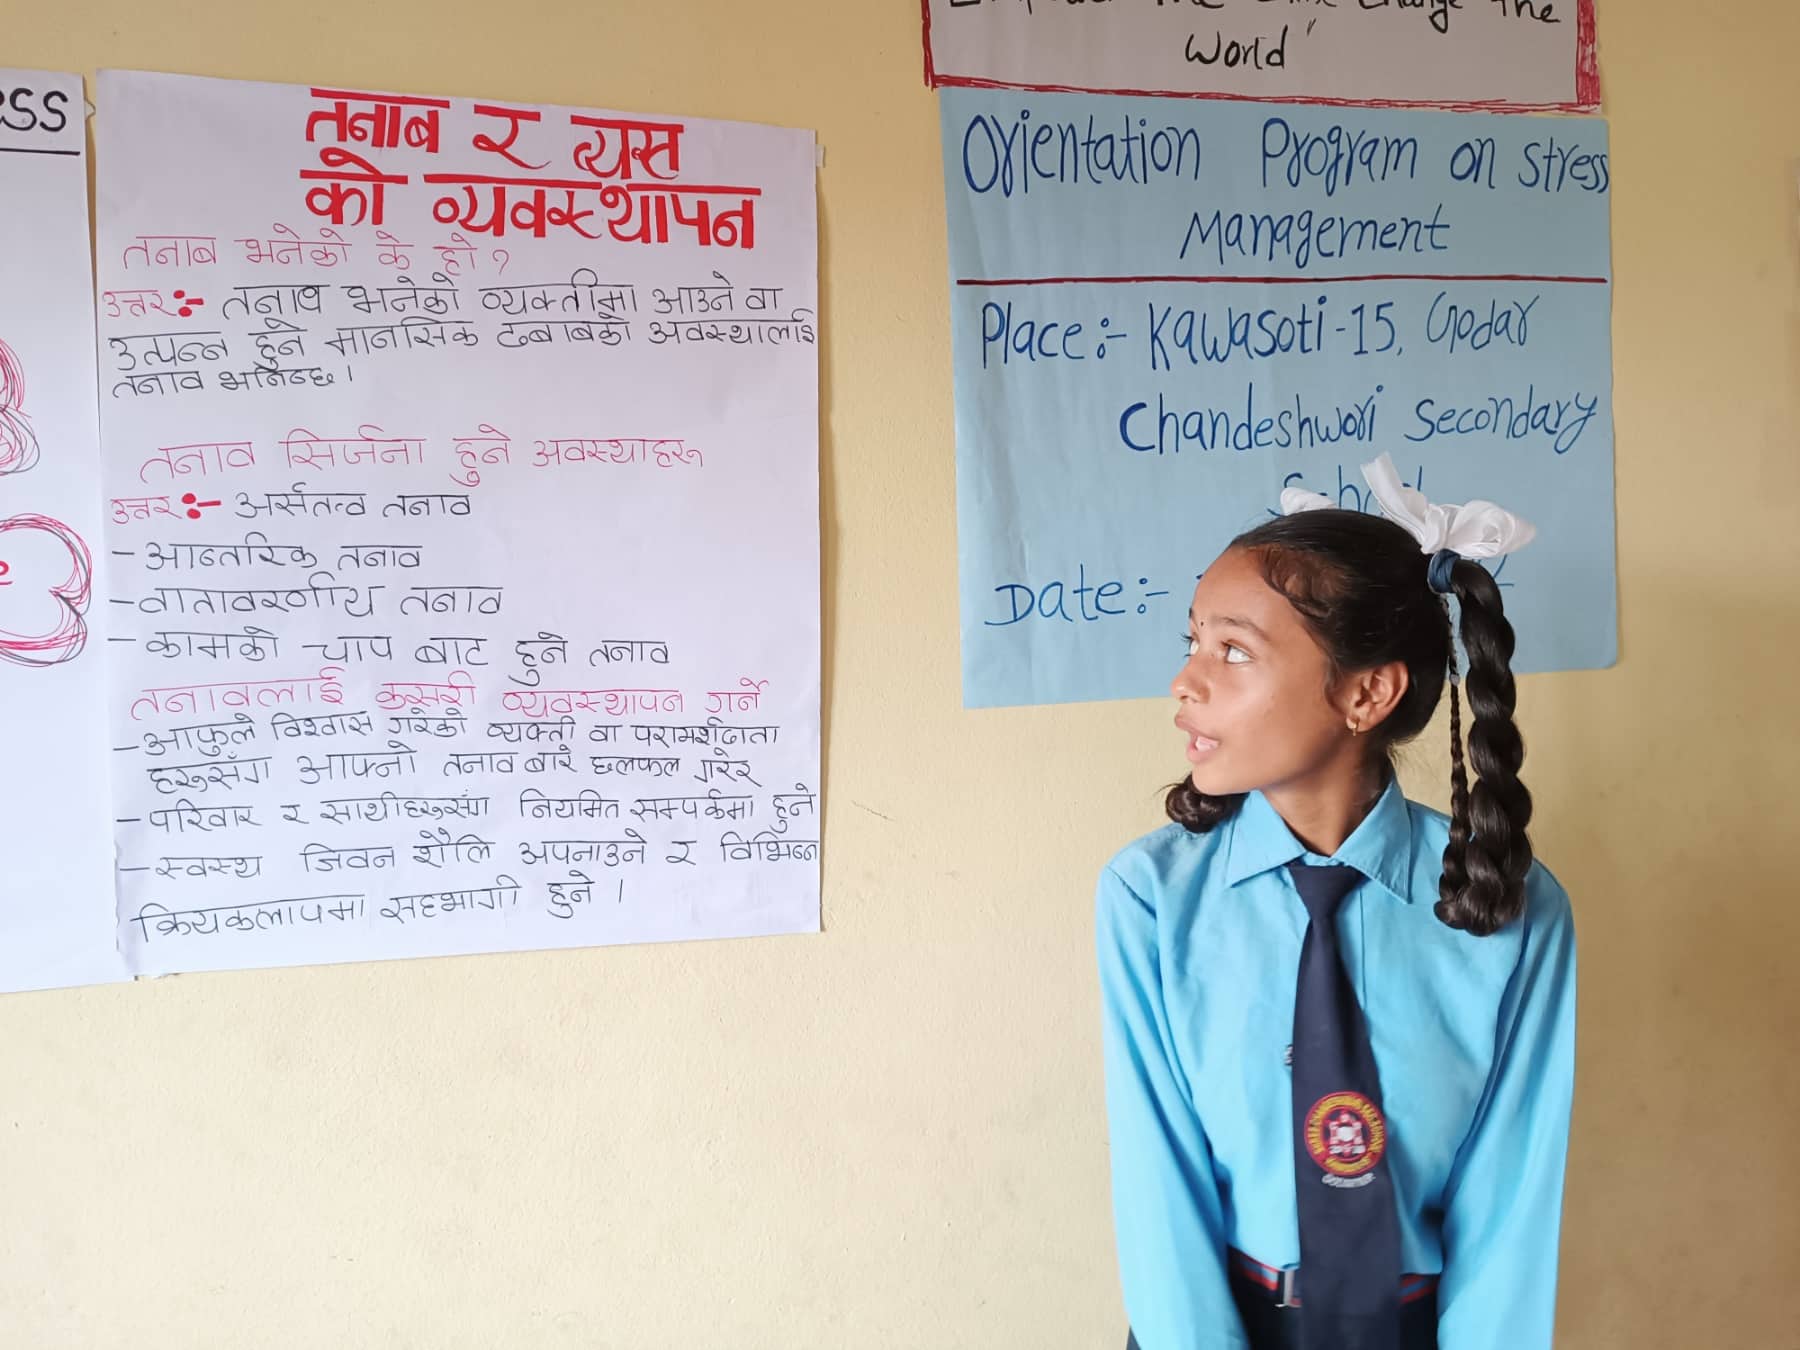 ESS
तनाब र त्यस
को व्यवस्थापन
तनाब भनेको के हो ?
उत्तर :- तनाव भनेको व्यक्तीमा आउने वा
उत्पन्न हुने मानसिक दबाबको अवस्थालाई
तनाव भनिन्छ ।
तनाव सिर्जना हुने अवस्थाहरू
उत्तर :- तनाव
- आन्तरिक तनाव
- वातावरणीय तनाव
- कामको चाप बाट हुने तनाव
तनावलाई कसरी व्यवस्थापन गर्ने
- आफुले विश्वास गरेको व्यक्ती वा परामर्शदाता
हरूसँग आफ्नो तनाव बारे छलफल गरेर
- परिवार र साथीहरूसँग नियमित सम्पर्कमा हुने
- स्वस्थ जिवन शैलि अपनाउने र विभिन्न
क्रियकलापमा सहभागी हुने ।
Change The
World"
Orientation Program on Stress
Management
Place :- Kawasoti -15, Godar
Chandeshwori Secondary
School
Date :-